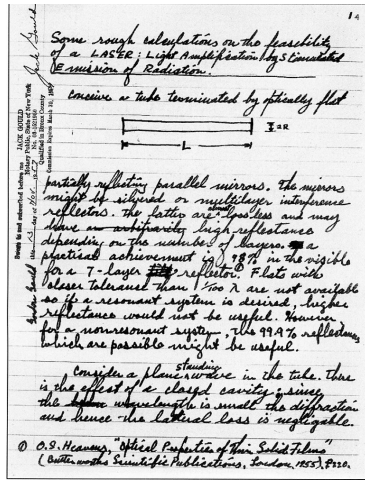 1
Some rough calculations on the feasibility
of a LASER: Light Amplification by Stimulated
Emission of Radiation.
conceive a tube terminated by optically flat
2R
L
partially reflecting parallel mirrors. The mirrors
might be silvered or multilayer interference
reflectors. The latter are lossless and may
have high reflectance
depending on the number of layers. a
practical achievement is 98% in the visible
for a 7-layer reflector.① Flats with
closer tolerance than 1/100 λ are not available
so if a resonant system is desired, higher
reflectance would not be useful. However
for a nonresonant system, the 99.9% reflectances
which are possible might be useful.
Consider a plane standing wave in the tube. There
is the effect of a closed cavity; since
the wavelength is small the diffraction
and hence the lateral loss is negligable.
① O.S. Heavens, "Optical Properties of Thin Solid Films"
(Butterworths Scientific Publications, London, 1955), p220.
Sworn to and subscribed before me
this 13 day of Nov. 1957
JACK GOULD
Notary Public, State of New York
Qualified in Bronx County
Commission Expires March 30,
Jack Gould
Gordon Gould